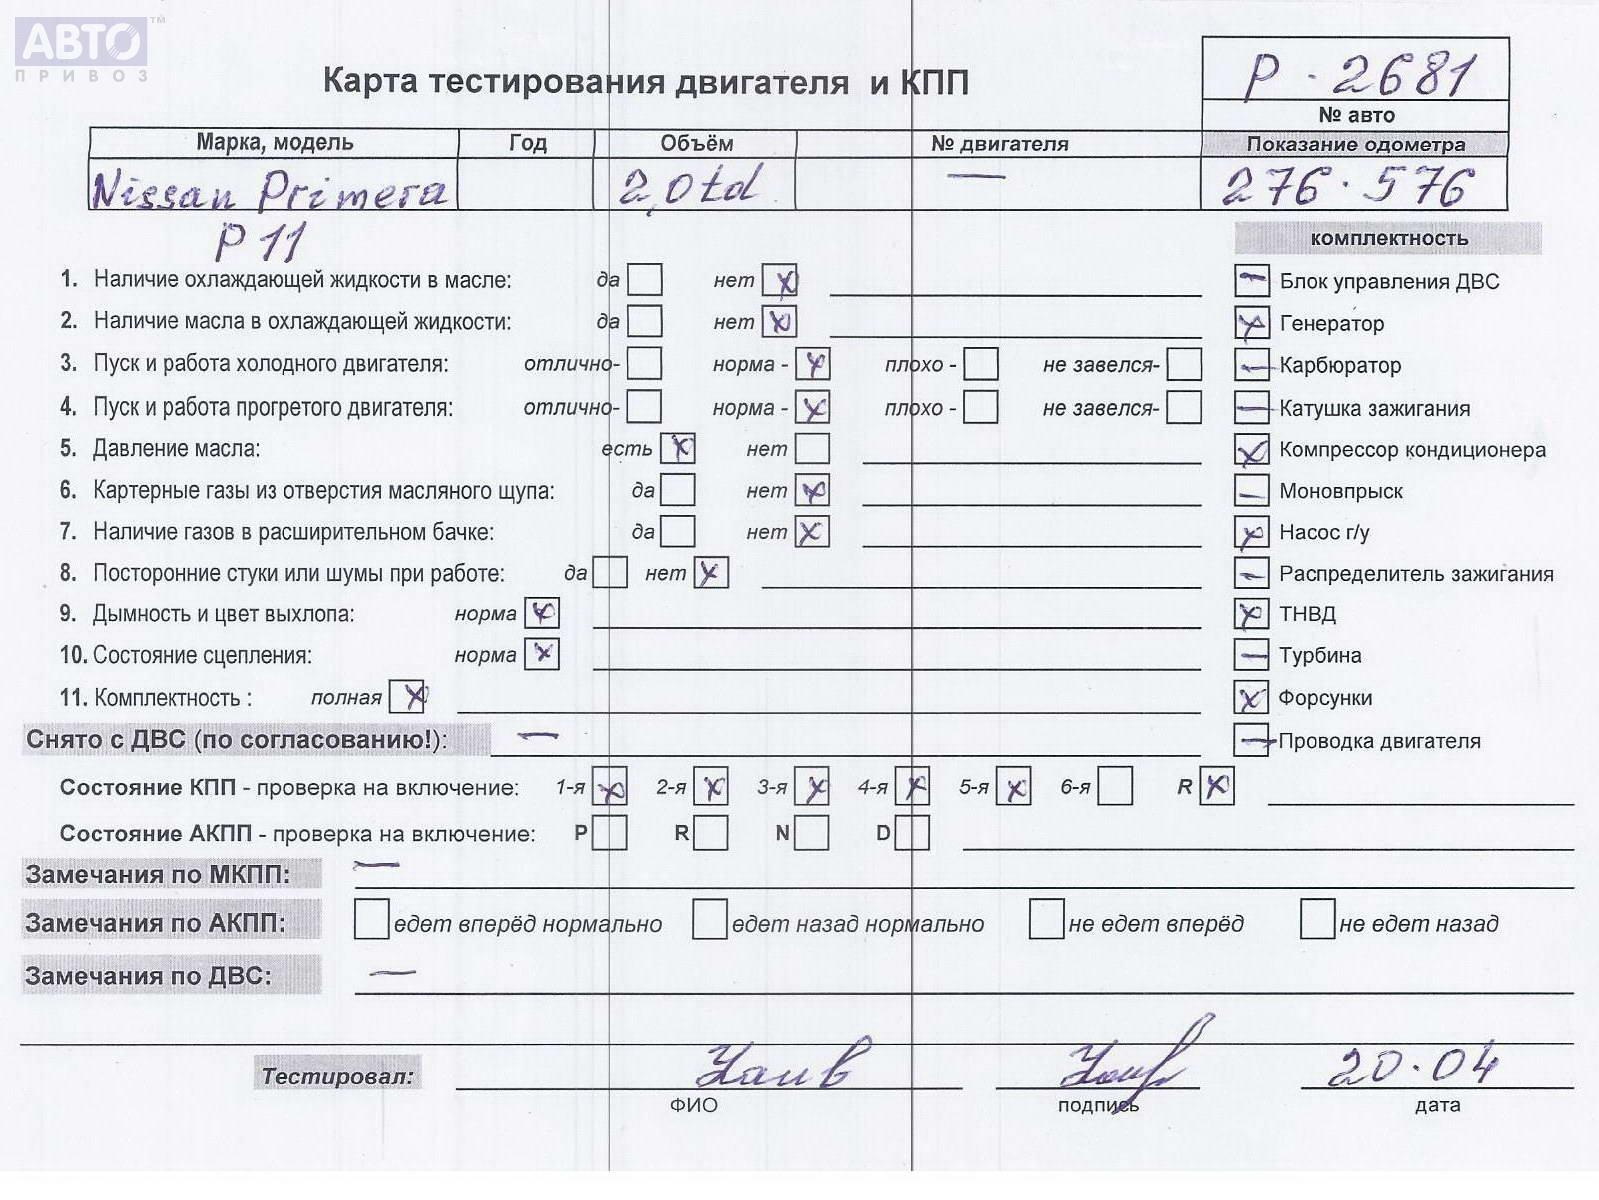 АВТО™
ПРИВОЗ
Карта тестирования двигателя и КПП
Р - 2681
№ авто
Марка, модель Год Объём № двигателя Показание одометра
Nissan Primera 2,0td — 276.576
P11
комплектность
1. Наличие охлаждающей жидкости в масле: да нет x
2. Наличие масла в охлаждающей жидкости: да нет x
3. Пуск и работа холодного двигателя: отлично- норма - x плохо - не завелся-
4. Пуск и работа прогретого двигателя: отлично- норма - x плохо - не завелся-
5. Давление масла: есть x нет
6. Картерные газы из отверстия масляного щупа: да нет x
7. Наличие газов в расширительном бачке: да нет x
8. Посторонние стуки или шумы при работе: да нет x
9. Дымность и цвет выхлопа: норма x
10. Состояние сцепления: норма x
11. Комплектность : полная x
— Блок управления ДВС
x Генератор
— Карбюратор
— Катушка зажигания
x Компрессор кондиционера
— Моновпрыск
x Насос г/у
— Распределитель зажигания
x ТНВД
— Турбина
x Форсунки
— Проводка двигателя
Снято с ДВС (по согласованию!): —
Состояние КПП - проверка на включение: 1-я x 2-я x 3-я x 4-я x 5-я x 6-я R x
Состояние АКПП - проверка на включение: P R N D
Замечания по МКПП: —
Замечания по АКПП: едет вперёд нормально едет назад нормально не едет вперёд не едет назад
Замечания по ДВС: —
Тестировал: 20.04
ФИО подпись дата